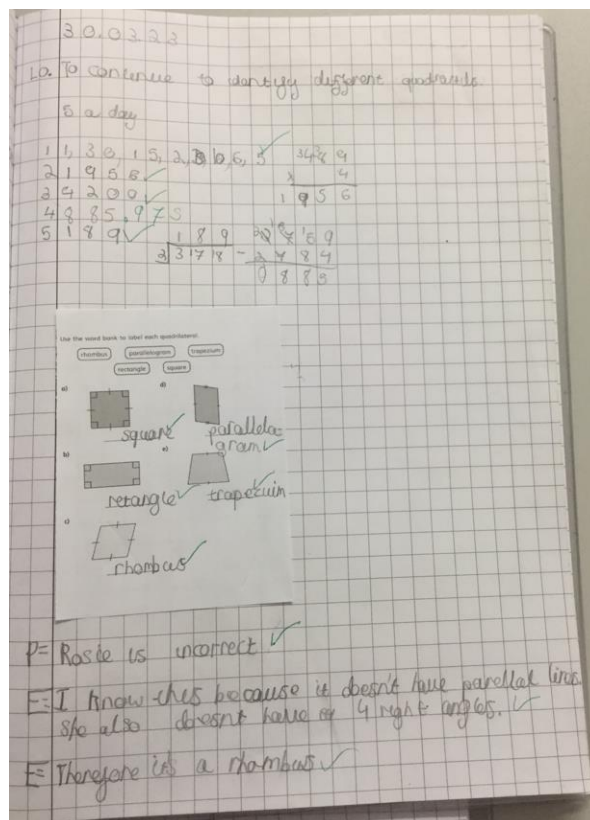 30.03.23
LO. To continue to identify different quadrants.
5 a day
1 1, 30, 15, 2, 10, 6, 5
2 1956
3 4200
4 885.975
5 189
489
x 4
1956
189
2 3 17 18
2784
0885
Use the word bank to label each quadrilateral.
rhombus parallelogram trapezium
rectangle square
a) d)
square parallelo
gram
b) e)
retangle trapezuim
c)
rhombus
P= Rosie is incorrect
E= I know this because it doesn't have parellal lines
she also doesnt have 4 right angles.
E= Therefore its a rhombus